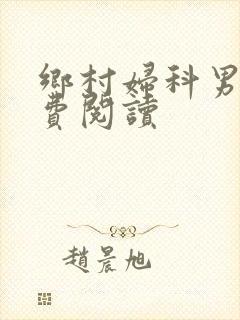 鄉村婦科男
費閱讀
趙晨旭